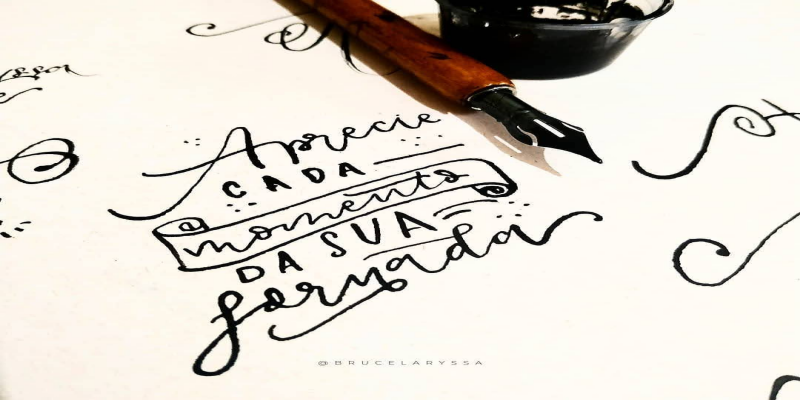 Aprecie
CADA
momento
DA SUA
Jornada
@BRUCELARYSSA